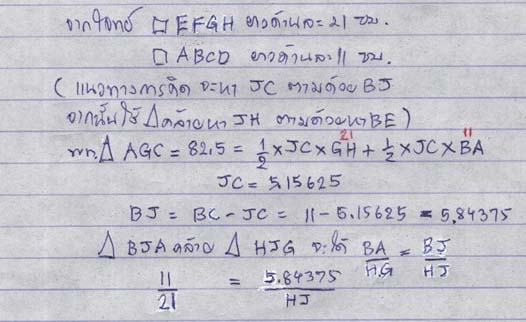 จากโจทย์ □ EFGH ยาวด้านละ 21 ซม.
□ ABCD ยาวด้านละ 11 ซม.
(แนวทางการคิด จะหา JC ตามด้วย BJ
จากนั้นใช้ Δ คล้ายหา JH ตามด้วยหา BE)
21 11
พท. Δ AGC = 82.5 = 1/2 × JC × GH + 1/2 × JC × BA
JC = 5.15625
BJ = BC - JC = 11 - 5.15625 = 5.84375
Δ BJA คล้าย Δ HJG จะได้ BA/HG = BJ/HJ
11/21 = 5.84375/HJ